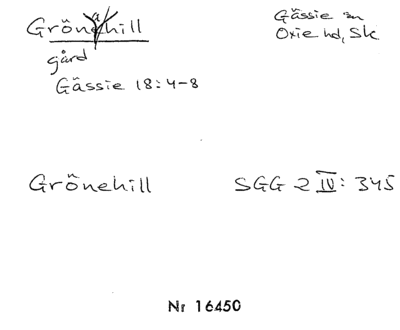 Grönehill
a
Gässie sn
Oxie hd, Sk.
gård
Gässie 18:4-8
Grönehill
SGG 2 IV: 345
Nr 16450